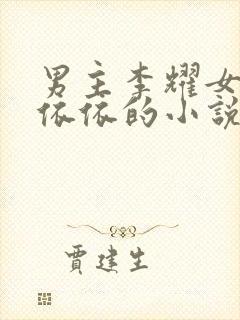 男主李耀女
依依的小說
賈建生